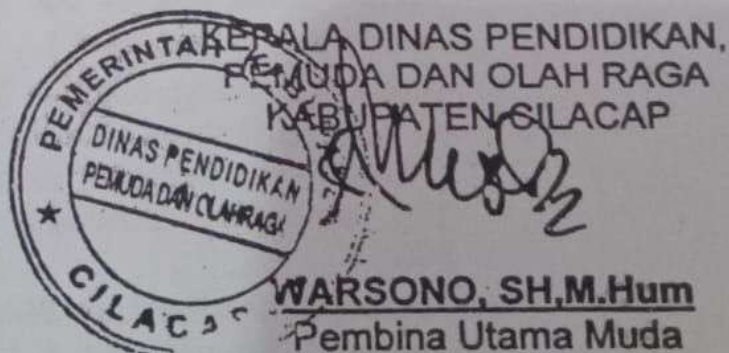 KEPALA DINAS PENDIDIKAN,
PEMUDA DAN OLAH RAGA
KABUPATEN CILACAP
PEMERINTAH
DINAS PENDIDIKAN
PEMUDA DAN OLAHRAGA
CILACAP
WARSONO, SH,M.Hum
Pembina Utama Muda